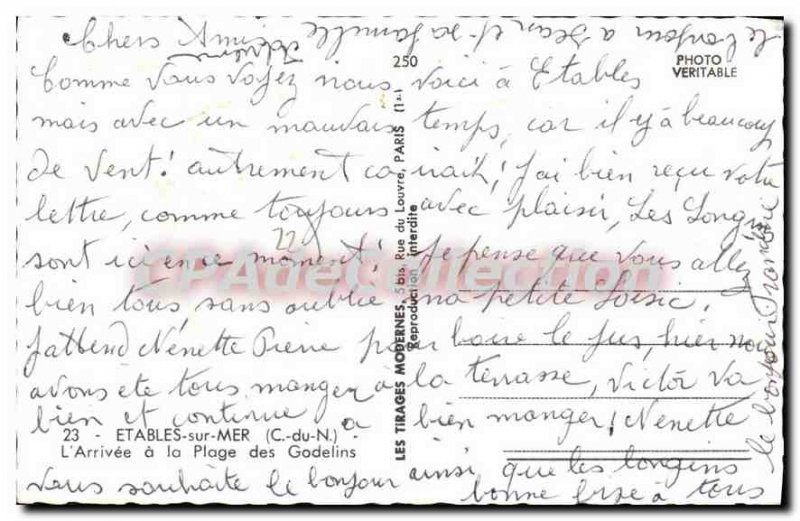 le bonjour a Jean et sa famille
Chers Amis
250
PHOTO
VERITABLE
Comme vous voyez nous voici à Etables
mais avec un mauvais temps, car il y à beaucoup
de vent! autrement ca irait! j'ai bien reçu votre
lettre, comme toujours avec plaisir, Les Longins
22
sont ici en ce moment! je pense que vous allez
bien tous, sans oublié ma petite
jattend Nenette Pierre pour boire le jus, hier nous
avons éte tous manger à la terrasse, Victor va
bien et continue a bien manger, Nenette
23 - ETABLES-sur-MER (C.-du-N.) -
L'Arrivée à la Plage des Godelins
vous souhaite le bonjour ainsi que les longins
bonne bise à tous
le bonjour
LES TIRAGES MODERNES, 5 bis, Rue du Louvre, PARIS (1er)
Reproduction interdite
CPAdeCollection